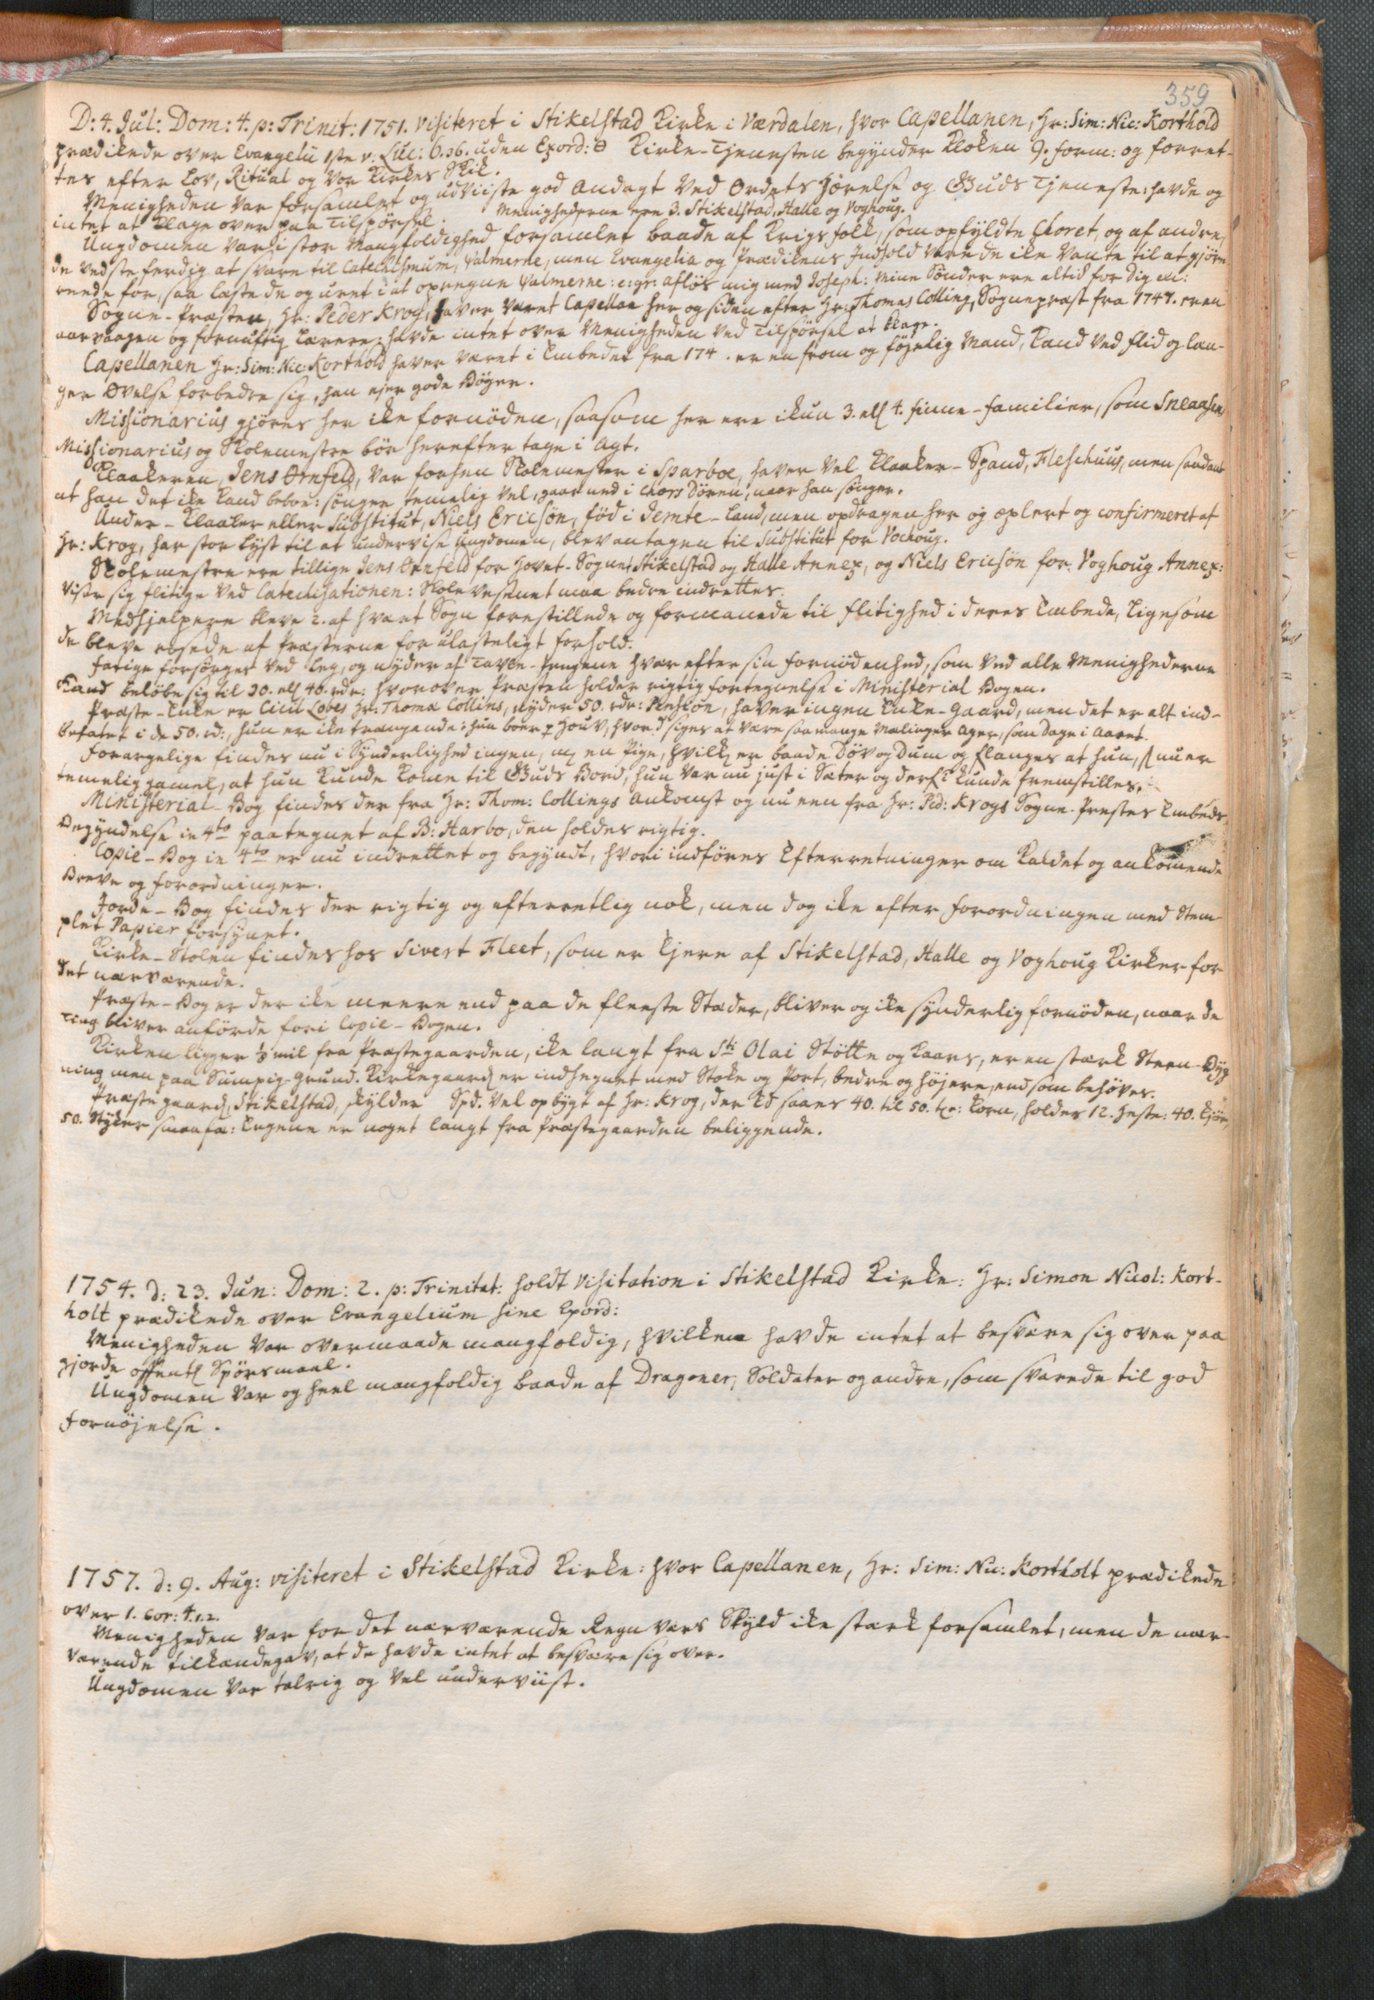 359
D: 4. Jul: Dom: 4. p: Trinit: 1751. visiteret i Stikelstad Kirke i Værdalen, hvor Capellanen, Hr: Sim: Nic: Korthold
prædikede over Evangelii 1ste v: Luc: 6.36. uden Exord: Kirke-Tjenesten begynder Kloken 9. form: og forret-
tes efter Lov, Ritual og Vor Kirkes Skik.
Menigheden var forsamlet og udviiste god Andagt ved Ordets hørelse og Guds Tjeneste: havde og
intet at klage over paa Tilspørsel. Menighederne ere 3. Stikelstad, Halle og Voghoug.
Ungdomen var i stor Mangfoldighed forsamlet baade af Krigsfolk, som opfyldte Choret, og af andre,
de vidste ferdig at svare til Catechismum, Psalmerne, men Evangelia og Prædikens Indhold var de ike vante til at gjöre
rede for, saa læste de og uret i at opregne Psalmerne: e: gr: afløs mig med Joseph: mine Sönder ere altid for dig etc:
Sogne-Præsten, Hr: Peder Krog, haver været Capellan her og siden efter Hr: Thomas Colling, Sognepræst fra 1747. er en
aarvaagen og fornuftig Lærere, havde intet over Menigheden ved Tilspörsel at klage.
Capellanen Hr: Sim: Nic: Korthold haver været i Embedet fra 174 . er en from og föjelig Mand, kand ved flid og læn-
gere Øvelse forbedre sig, han ejer gode Böger.
Missionarius gjöres her ike fornöden, saasom her ere ikun 3. ell 4. finne-familier, som Sneaasens
Missionarius og Skolemestre bör herefter tage i Agt.
Klokeren, Jens Ørnfeld, var forhen Skolemester i Sparboe, haver vel Kloker-Spand, Fleskhuus, men saadant
at han det ike kand beboe: siunger temelig vel, gaar ned i Chors Dören, naar han siunger.
Under-Kloker eller Substitut, Niels Ericsön, föd i Jemte-land, men opdragen her og oplært og confirmeret af
Hr: Krog, har stor Lyst til at undervise Ungdomen, blev antagen til Substitut for Vochoug.
Skolemestre ere tillige Jens Ørnfeld for Hovet-Sognet Stikelstad og Halle Annex, og Niels Ericsön for Voghoug Annex:
viste sig flitige ved Catechisationen: Skole Vesenet maa bedre indrettes.
Medhjelpere bleve 2. af hvært Sogn forestillede og formanede til flitighed i deres Embede, ligesom
de bleve roesede af Præsterne for ulasteligt forhold.
Fatige forsörges ved Leg, og nyder af Tavle-Pengene hvær efter sin fornödenhed, som ved alle Menighederne
kand beløbe sig til 30. ell 40. rdr: hvorover Præsten holder rigtig fortegnelse i Ministerial Bogen.
Præste-Enke er Hr: Thomæ Collins, nyder 50. rdr: Pension, haver ingen Enke-Gaard, men det er alt ind-
befattet i de 50. rd:, hun er ike trængende: hun boer p Houv, hvor d siges at være saa mange Melinger Ager, som Dage i Aaret.
Forargelige findes nu i Synderlighed ingen, en Pige, hvilk er baade Döv og Dum og flanges at hun, nu er
temelig gamel, at hun kunde kome til Guds Bord, hun var nu just i Sæter og kunde fremstilles.
Ministerial-Bog findes der fra Hr: Thom: Collings Ankomst og nu een fra Hr: Ped: Krogs Sogne-Prestes Embeds
Begyndelse in 4to paategnet af B: Harbo, den holdes rigtig.
Copie-Bog in 4to er nu indrettet og begyndt, hvori indföres Efterretninger om Kaldet og ankomende
Breve og forordninger.
Jorde-Bog findes der rigtig og efterretlig nok, men dog ike efter Forordningen med Stem-
plet Papier forsynet.
Kirke-Stolen findes hos Sivert Fleet, som er Ejere af Stikelstad, Halle og Voghoug Kirker for
det nærværende.
Præste-Bog er der ike meere end paa de fleeste Stæder, bliver og ike synderlig fornöden, naar de
Ting bliver anförde fori Copie-Bogen.
Kirken ligger 1/2 mil fra Præstegaarden, ike langt fra Sti Olai Stötte og Kaars, er en stærk Steen-Byg
ning, men paa Sumpig-grund. Kirkegaard er indhegnet med Stoke og Port, bedre og höjere, end som behöves.
Præstegaard, Stikelstad, skylder Spd. vel opbygt af Hr: Krog, der kd saaes 40. til 50. tr: korn, holdes 12. Heste: 40. Kjör,
50. Styker smaafæ: Engene er noget langt fra Præstegaarden beliggende.
1754. d: 23. Jun: Dom: 2. p: Trinitat: holdt Visitation i Stikelstad Kirke: Hr: Simon Nicol: Kort-
holt prædikede over Evangelium sine Exord:
Menigheden var overmaade mangfoldig, hvilken havde intet at besvære sig over paa
gjorde offentl Spörsmaal.
Ungdomen var og heel mangfoldig baade af Dragoner, Soldater og andre, som svarede til god
Fornöjelse.
1757. d: 9. Aug: visiteret i Stikelstad Kirke: hvor Capellanen, Hr: Sim: Nic: Kortholt prædikede
over 1. Cor: 4.1.2.
Menigheden var for det nærværende Regn veirs Skyld ike stærk forsamlet, men de nær-
værende tilkændegav, at de havde intet at besvære sig over.
Ungdomen var talrig og vel underviist.